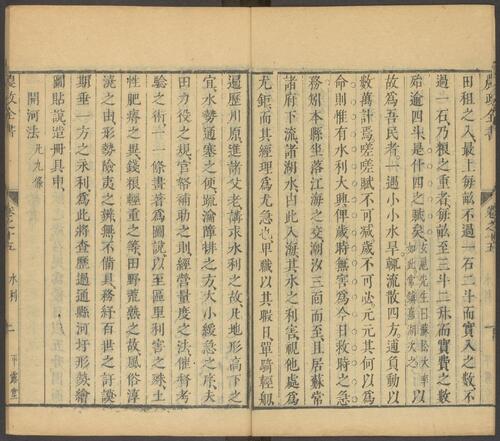 田租之入最上每畝不過一石二斗而實入之數不
過一石乃粮之重者每畝至三斗二升而實費之數
殆逾四斗是什四之賦矣玄扈先生曰蘇松大率以
如此常鎮嘉湖次之
故爲吾民者一遇小小水旱輒流散四方逋負動以
數萬計焉嗟嗟賦不可減歲不可必元元其何以爲
命則惟有水利大興俾歲時無害爲今日救時之急
務矧本縣坐落江海之交潮汐三面而至且居蘇常
諸府下流諸湖水由此入海其水之利害視他處爲
尤鉅而其經理爲尤急也卑職以其暇日單騎輕舠
遍歷川原進諸父老講求水利之故凡地形高下之
宜水勢通塞之便疏瀹障排之方大小緩急之序夫
田力役之規官帑補助之則經營量度之法催督考
驗之術一一條畫著爲圖說以至區里利害之殊土
性肥瘠之異錢粮輕重之等田野荒熟之故風俗淳
澆之由形勢險夷之辨無不備具務紓百世之訏謨
期垂一方之永利爲此將查歷過通縣河圩形勢繪
圖貼說造冊具申
開河法凡九條
農政全書
卷之十五
水利
二
平露堂
農政全書
卷之十五